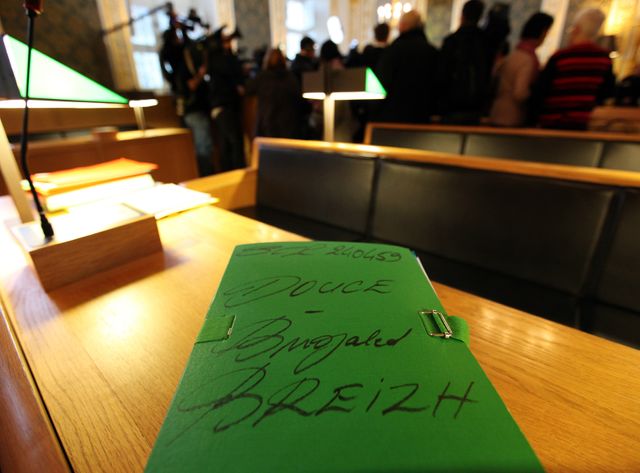 240459
DOUCE
-
Bugaled
BREIZH